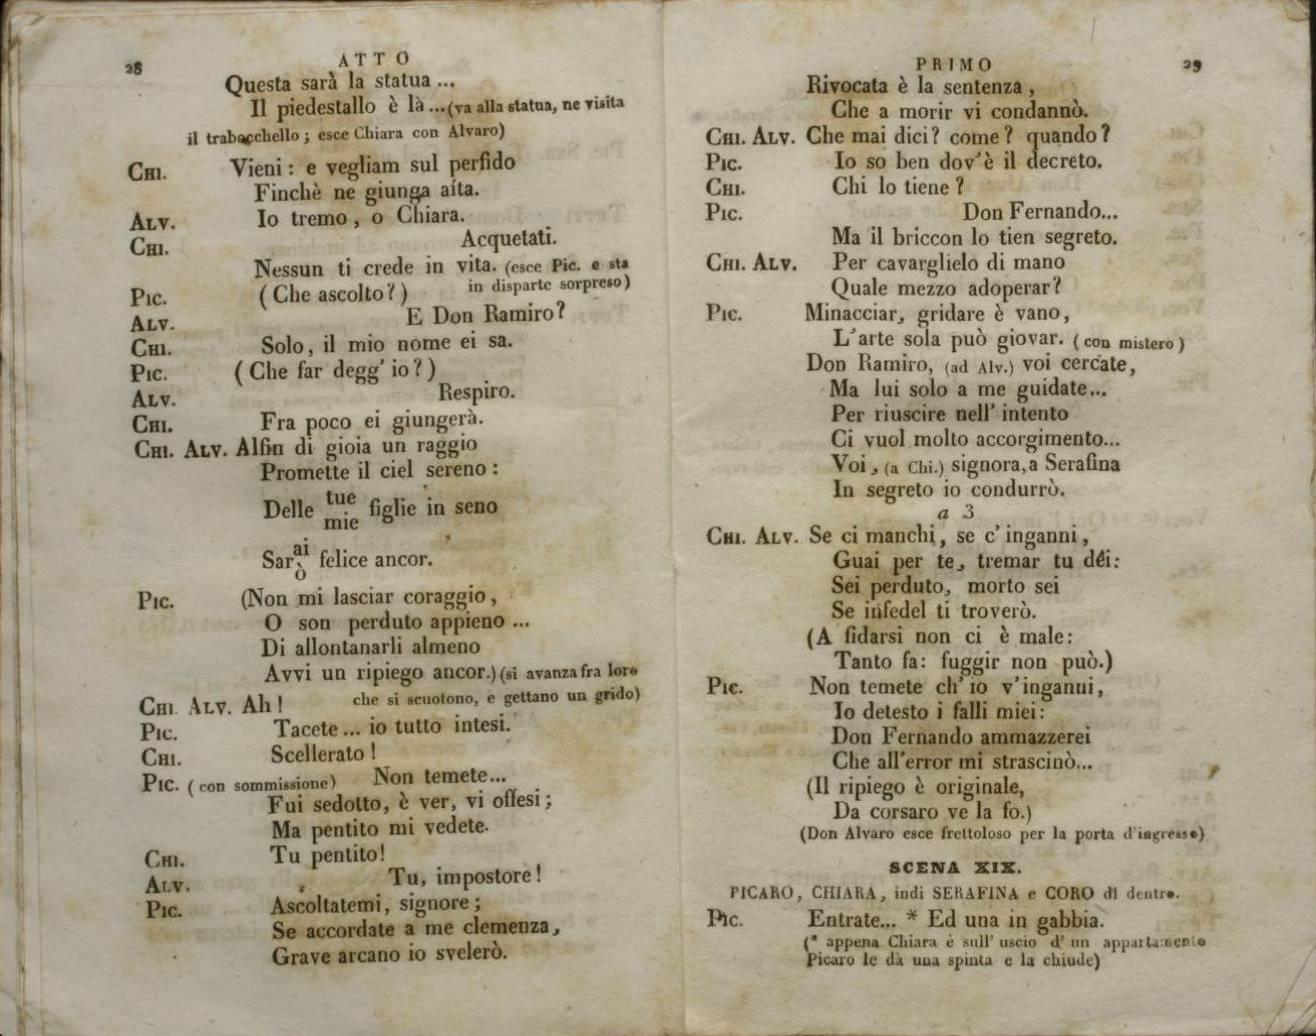 28 ATTO
Questa sarà la statua ...
Il piedestallo è là ...(va alla statua, ne visita
il trabocchello ; esce Chiara con Alvaro)
CHI. Vieni : e vegliam sul perfido
Finchè ne giunga aíta.
ALV. Io tremo , o Chiara.
CHI. Acquetati.
Nessun ti crede in vita. (esce Pic. e sta
PIC. ( Che ascolto? ) in disparte sorpreso)
ALV. E Don Ramiro?
CHI. Solo, il mio nome ei sa.
PIC. ( Che far degg' io ? )
ALV. Respiro.
CHI. Fra poco ei giungerà.
CHI. ALV. Alfin di gioia un raggio
Promette il ciel sereno :
Delle tue
mie figlie in seno
Sarai
ò felice ancor.
PIC. (Non mi lasciar coraggio ,
O son perduto appieno ...
Di allontanarli almeno
Avvi un ripiego ancor.) (si avanza fra loro
CHI. ALV. Ah ! che si scuotono, e gettano un grido)
PIC. Tacete ... io tutto intesi.
CHI. Scellerato !
PIC. ( con sommissione) Non temete...
Fui sedotto, è ver, vi offesi ;
Ma pentito mi vedete.
CHI. Tu pentito!
ALV. Tu, impostore !
PIC. Ascoltatemi, signore ;
Se accordate a me clemenza,
Grave arcano io svelerò.
PRIMO 29
Rivocata è la sentenza ,
Che a morir vi condannò.
CHI. ALV. Che mai dici? come? quando?
PIC. Io so ben dov'è il decreto.
CHI. Chi lo tiene ?
PIC. Don Fernando...
Ma il briccon lo tien segreto.
CHI. ALV. Per cavarglielo di mano
Quale mezzo adoperar?
PIC. Minacciar, gridare è vano,
L'arte sola può giovar. ( con mistero )
Don Ramiro, (ad Alv.) voi cercate,
Ma lui solo a me guidate...
Per riuscire nell' intento
Ci vuol molto accorgimento...
Voi, (a Chi.) signora, a Serafina
In segreto io condurrò.
a 3
CHI. ALV. Se ci manchi, se c' inganni ,
Guai per te, tremar tu déi:
Sei perduto, morto sei
Se infedel ti troverò.
(A fidarsi non ci è male:
Tanto fa: fuggir non può.)
PIC. Non temete ch' io v'inganni,
Io detesto i falli miei:
Don Fernando ammazzerei
Che all'error mi strascinò...
(Il ripiego è originale,
Da corsaro ve la fo.)
(Don Alvaro esce frettoloso per la porta d'ingresso)
SCENA XIX.
PICARO, CHIARA, indi SERAFINA e CORO di dentro.
PIC. Entrate... * Ed una in gabbia.
(* appena Chiara è sull' uscio d' un appartamento
Picaro le dà una spinta e la chiude)